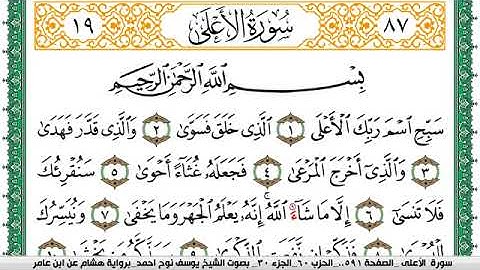 ٨٧ سُورَةُ الأَعْلَى ١٩
بِسْمِ اللَّهِ الرَّحْمَٰنِ الرَّحِيمِ
سَبِّحِ اسْمَ رَبِّكَ الْأَعْلَى ١ الَّذِي خَلَقَ فَسَوَّى ٢ وَالَّذِي قَدَّرَ فَهَدَى
٣ وَالَّذِي أَخْرَجَ الْمَرْعَى ٤ فَجَعَلَهُ غُثَاءً أَحْوَى ٥ سَنُقْرِئُكَ
فَلَا تَنسَى ٦ إِلَّا مَا شَاءَ اللَّهُ إِنَّهُ يَعْلَمُ الْجَهْرَ وَمَا يَخْفَى ٧ وَنُيَسِّرُكَ
سورة الأعلى _الصفحة ٥٩١_ الحزب ٦٠_ الجزء ٣٠_ بصوت الشيخ يوسف نوح احمد_ برواية هشام عن ابن عامر